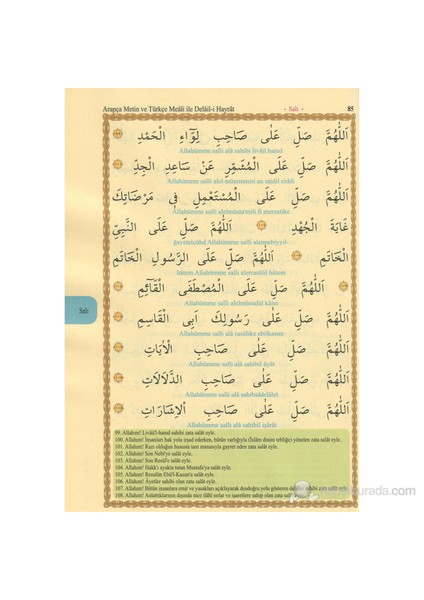 Arapça Metin ve Türkçe Meâli ile Delâil-i Hayrât - Salı - 85
اَللّٰهُمَّ صَلِّ عَلٰى صَاحِبِ لِوَٓاءِ الْحَمْدِ
Allahümme salli alâ sahibi livâil hamd
اَللّٰهُمَّ صَلِّ عَلَى الْمُشَمِّرِ عَنْ سَاعِدِ الْجِدِّ
Allahümme salli alel müşemmiri an saidil ciddi
اَللّٰهُمَّ صَلِّ عَلَى الْمُسْتَعْمِلِ فِى مَرْضَاتِكَ
Allahümme salli alelmüsta'mili fi merzatike
غَايَةَ الْجُهْدِ اَللّٰهُمَّ صَلِّ عَلَى النَّبِيِّ
ğayetelcühd Allahümme salli alennebiyyil-
الْخَاتَمِ اَللّٰهُمَّ صَلِّ عَلَى الرَّسُولِ الْخَاتَمِ
hâtem Allahümme salli alerrasûlil hâtem
اَللّٰهُمَّ صَلِّ عَلَى الْمُصْطَفَى الْقَٓائِمِ
Allahümme salli alelmüstafal kâim
اَللّٰهُمَّ صَلِّ عَلٰى رَسُولِكَ اَبِى الْقَاسِمِ
Allahümme salli alâ rasûlike ebilkasım
اَللّٰهُمَّ صَلِّ عَلٰى صَاحِبِ الْاٰيَاتِ
Allahümme salli alâ sahibil âyât
اَللّٰهُمَّ صَلِّ عَلٰى صَاحِبِ الدَّلَالَاتِ
Allahümme salli alâ sahibiddelâlet
اَللّٰهُمَّ صَلِّ عَلٰى صَاحِبِ الْاِشَارَاتِ
Allahümme salli alâ sahibil işârât
Salı
99. Allahım! Livâü'l-hamd sahibi zata salât eyle.
100. Allahım! İnsanları hak yola irşad ederken, bütün varlığıyla (İslâm dinini tebliğe) yönelen zata salât eyle.
101. Allahım! Razı olduğun hususta tam manasıyla gayret eden zata salât eyle.
102. Allahım! Son Nebî'ye salât eyle.
103. Allahım! Son Resûl'e salât eyle.
104. Allahım! Hakk'ı ayakta tutan Mustafa'ya salât eyle.
105. Allahım! Resulün Ebü'l-Kasım'a salât eyle.
106. Allahım! Âyetler sahibi olan zata salât eyle.
107. Allahım! Bütün insanlara emir ve yasakları açıklayarak dosdoğru yolu gösteren sahibi zata salât eyle.
108. Allahım! Anlattıklarının dışında nice ilâhî sırlar ve işaretlere sahip olan zata salât eyle.